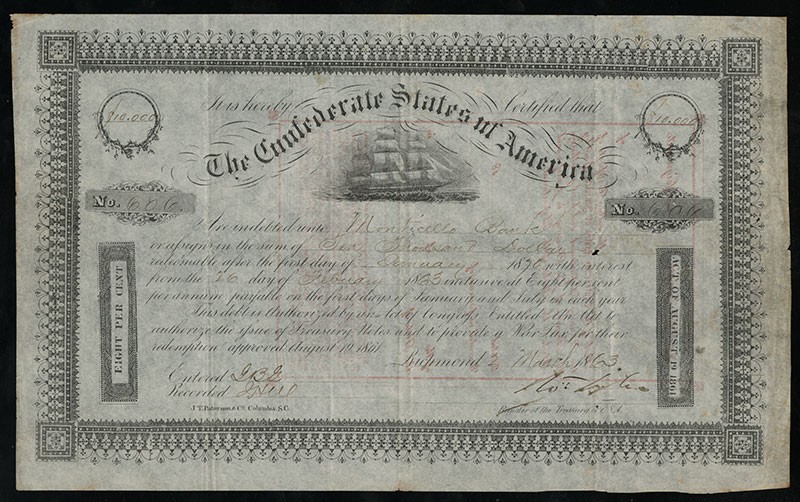 It is hereby Certified that
The Confederate States of America
$10.000
$10.000
No. 606
No. 606
Are indebted unto Monticello Bank
or assigns in the sum of Ten Thousand Dollars
redeemable after the first day of January 1870 with interest
from the 26 day of February 1863 inclusive at Eight per cent
per annum payable on the first days of January and July in each year
This debt is Authorized by an Act of Congress Entitled An Act to
authorize the issue of Treasury Notes and to provide a War Tax for their
redemption approved August 19, 1861
EIGHT PER CENT
ACT OF AUGUST 19 1861
Richmond March 1863
Entered 232
Recorded
J. T. Paterson & Co. Columbia, S.C.
Register of the Treasury C.S.A.